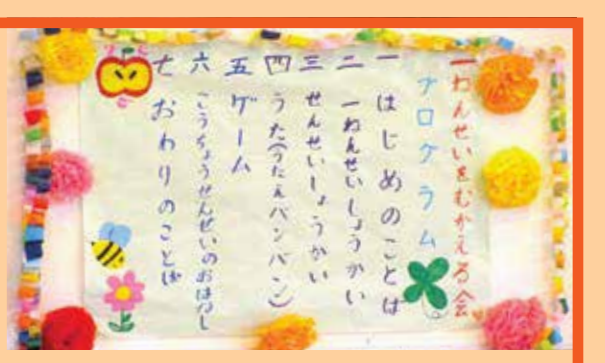 一ねんせいをむかえる会
プログラム
一 はじめのことば
二 一ねんせいしょうかい
三 せんせいしょうかい
四 うた(うたえバンバン)
五 ゲーム
六 こうちょうせんせいのおはなし
七 おわりのことば